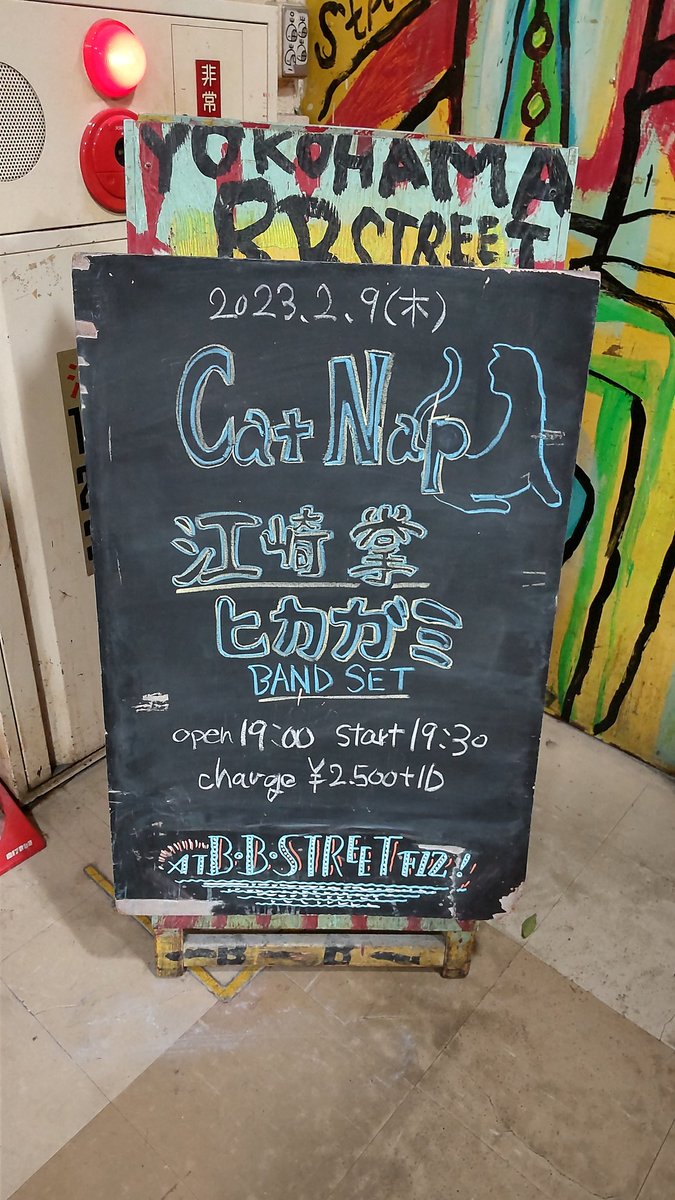 非常
YOKOHAMA
BB STREET
2023.2.9(木)
Cat Nap
江崎 掌
ヒカガミ
BAND SET
open 19:00 start 19:30
charge ¥2.500+1D
AT B・B・STREET F12!
B B